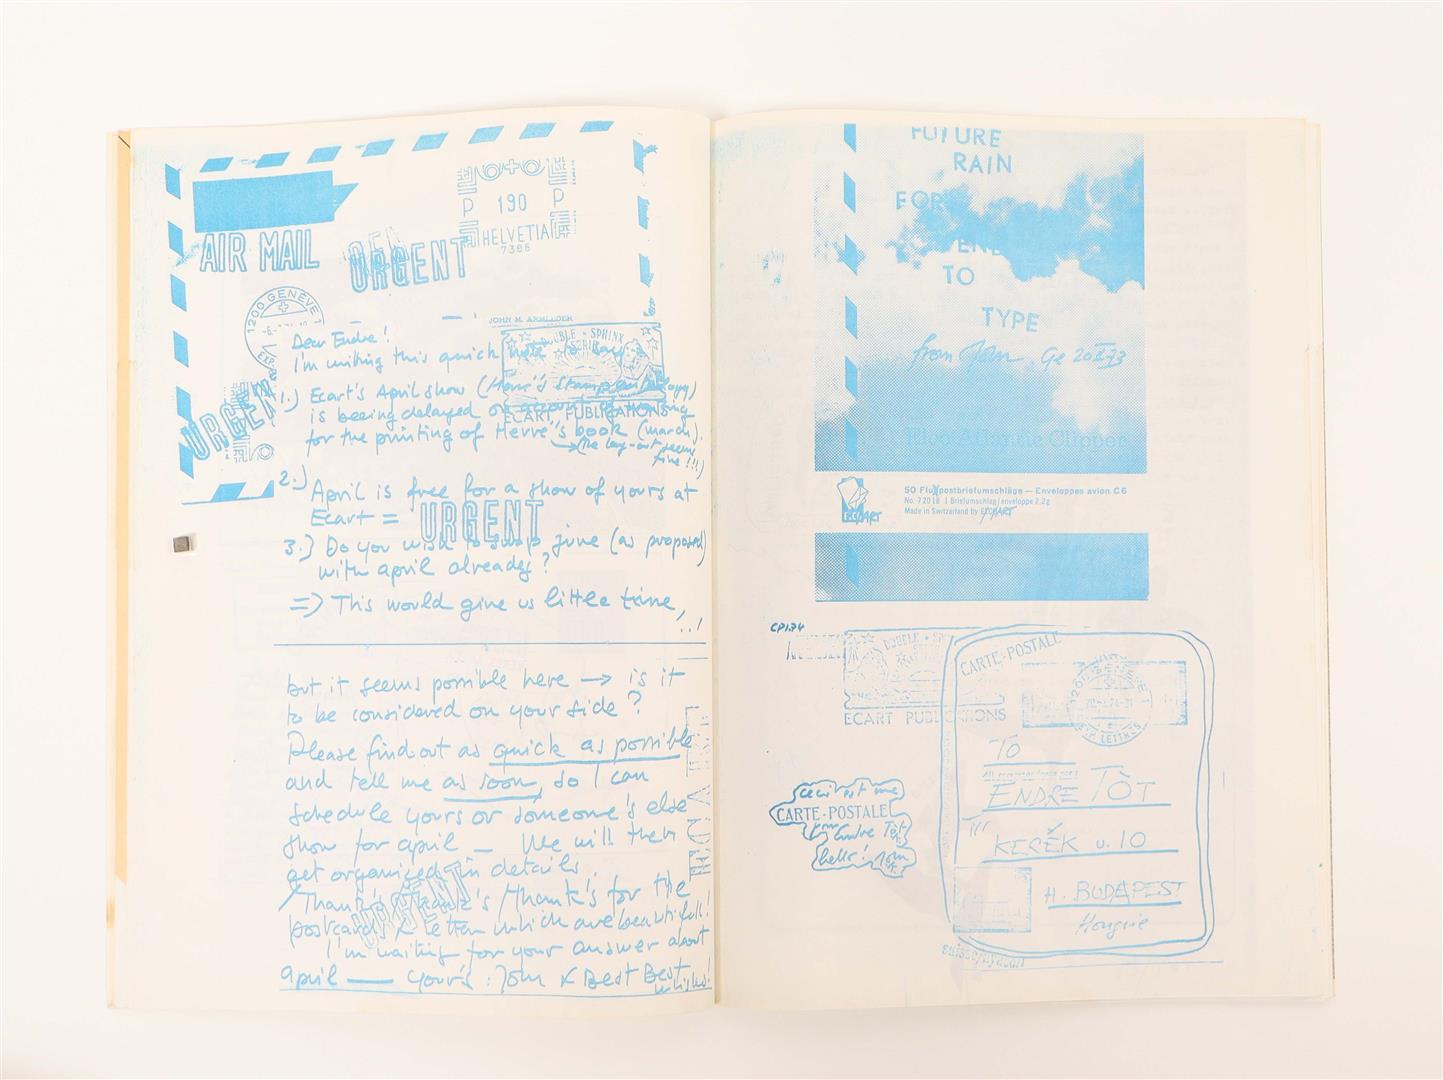 AIR MAIL
URGENT
P 190 P
HELVETIA
7386
1200 GENEVE 1
JOHN M. ARMLEDER
DOUBLE SPHINX
ECART PUBLICATIONS
URGENT
Dear Endre!
I'm writing this quick note to say
1.) Ecart's April show
is beeing delayed on account of
for the printing of Hervé's book (march).
the lay-out seems
fine!!!)
2.) April is free for a show of yours at
Ecart =
URGENT
3.) Do you wish to swap june (as proposed)
with april already?
=> This would give us little time,
but it seems possible here → is it
to be considered on your side?
Please find out as quick as possible
and tell me as soon, so I can
schedule yours or someone's else
show for april — We will then
get organized in details.
URGENT
Thank's Thank's Thank's for the
postcards & letter which are beautifull!
I'm waiting for your answer about
april — your's : John & Best Best
wishes!
FUTURE
RAIN
FOR
TO
TYPE
from John, Ge 20 II 73
Clipper
50 Fluxpostbriefumschläge — Enveloppes avion C6
No. 72018 1 Briefumschlag/enveloppe 2,2g
Made in Switzerland by ECART
DOUBLE
ECART PUBLICATIONS
CARTE-POSTALE
To
ENDRE TÒT
KERÉK u. 10
H. BUDAPEST
Hongrie
ceci est une
CARTE-POSTALE
pour Endre Tòt
hello! John